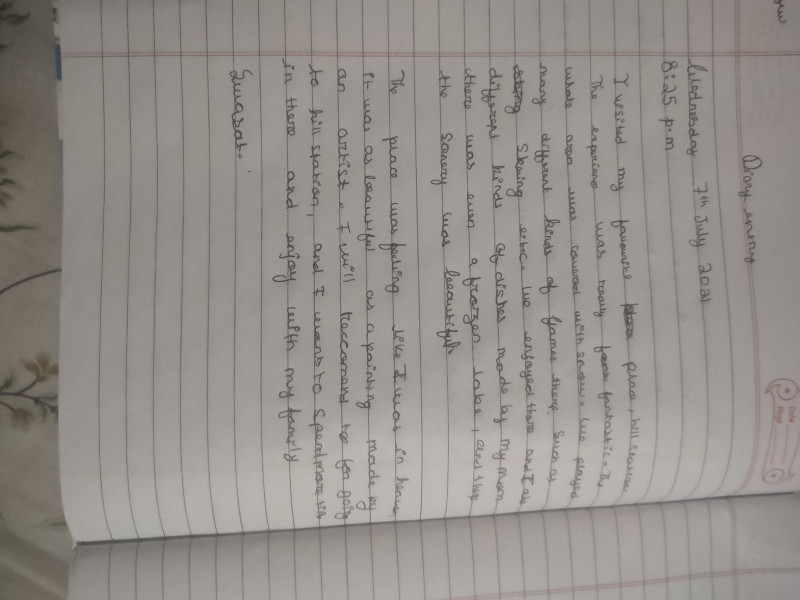 Diary entry
Date
Page
Wednesday 7th July 2021
8:25 p.m
I visited my favourite place, hill station
The experience was really fantastic. The
whole area was covered with snow. We played
many different kinds of games there. Such as
Skeing etc. We enjoyed there and I ate
different kinds of dishes made by my mom
there was even a frozen lake, and the
the senery was beautiful.
The place was feeling like I was in heaven,
it was as beautiful as a painting made by
an artist. I will reccomend to for going
to hill station, and I wants to spend more
in there and enjoy with my family